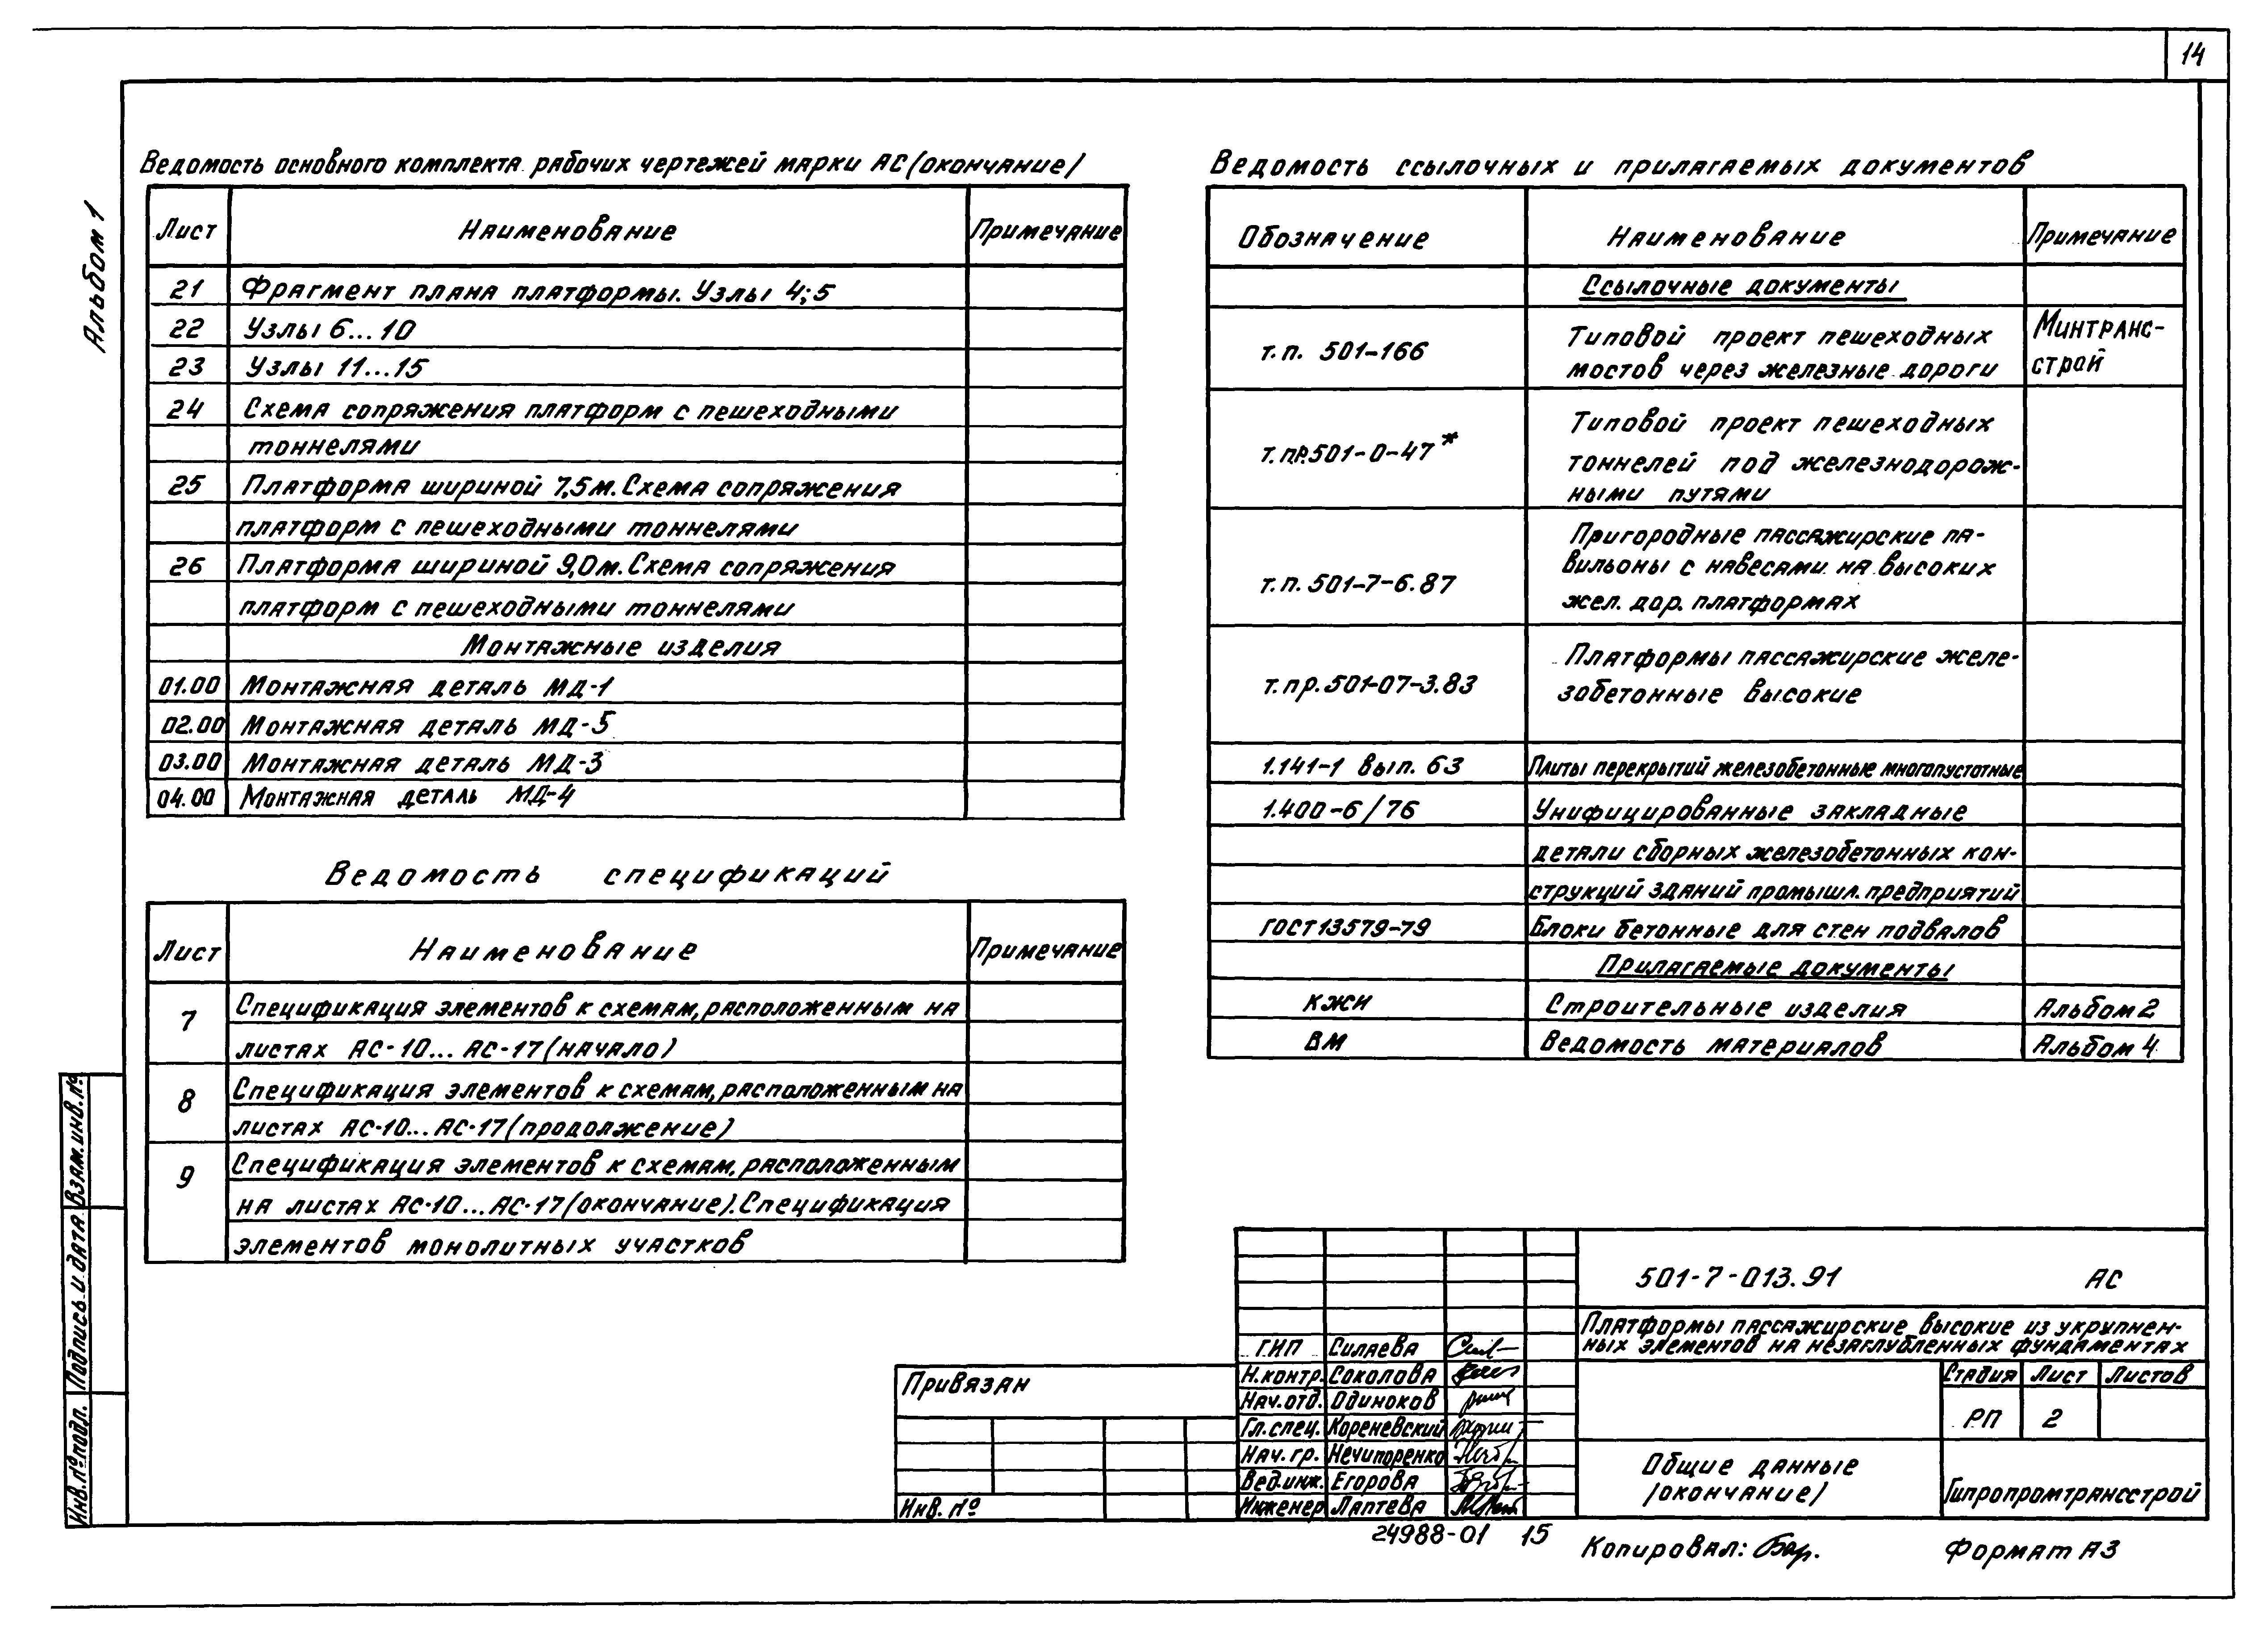 14
Альбом 1
Ведомость основного комплекта рабочих чертежей марки АС (окончание)
Лист Наименование Примечание
21 Фрагмент плана платформы. Узлы 4; 5
22 Узлы 6...10
23 Узлы 11...15
24 Схема сопряжения платформ с пешеходными
тоннелями
25 Платформа шириной 7,5м. Схема сопряжения
платформ с пешеходными тоннелями
26 Платформа шириной 9,0м. Схема сопряжения
платформ с пешеходными тоннелями
Монтажные изделия
01.00 Монтажная деталь МД-1
02.00 Монтажная деталь МД-5
03.00 Монтажная деталь МД-3
04.00 Монтажная деталь МД-4
Ведомость спецификаций
Лист Наименование Примечание
7 Спецификация элементов к схемам, расположенным на
листах АС-10... АС-17 (начало)
8 Спецификация элементов к схемам, расположенным на
листах АС-10... АС-17 (продолжение)
9 Спецификация элементов к схемам, расположенным
на листах АС-10... АС-17 (окончание). Спецификация
элементов монолитных участков
Ведомость ссылочных и прилагаемых документов
Обозначение Наименование Примечание
Ссылочные документы
т.п. 501-166 Типовой проект пешеходных Минтранс-
мостов через железные дороги строй
Типовой проект пешеходных
т.пр.501-0-47* тоннелей под железнодорож-
ными путями
Пригородные пассажирские па-
т.п. 501-7-6.87 вильоны с навесами на высоких
жел. дор. платформах
т.пр.501-07-3.83 Платформы пассажирские желе-
зобетонные высокие
1.141-1 вып. 63 Плиты перекрытий железобетонные многопустотные
1.400-6/76 Унифицированные закладные
детали сборных железобетонных кон-
струкций зданий промышл. предприятий
ГОСТ 13579-79 Блоки бетонные для стен подвалов
Прилагаемые документы
КЖИ Строительные изделия Альбом 2
ВМ Ведомость материалов Альбом 4
Взам. инв. №
Подпись и дата
Инв. № подл.
Привязан
Инв. №
ГИП Силаева
Н.контр. Соколова
Нач.отд. Одиноков
Гл.спец. Кореневский
Нач. гр. Нечипоренко
Вед.инж. Егорова
Инженер Лаптева
501-7-013.91 АС
Платформы пассажирские высокие из укрупнен-
ных элементов на незаглубленных фундаментах
Стадия Лист Листов
РП 2
Общие данные
(окончание)
Гипропромтрансстрой
24988-01 15
Копировал:
Формат А3